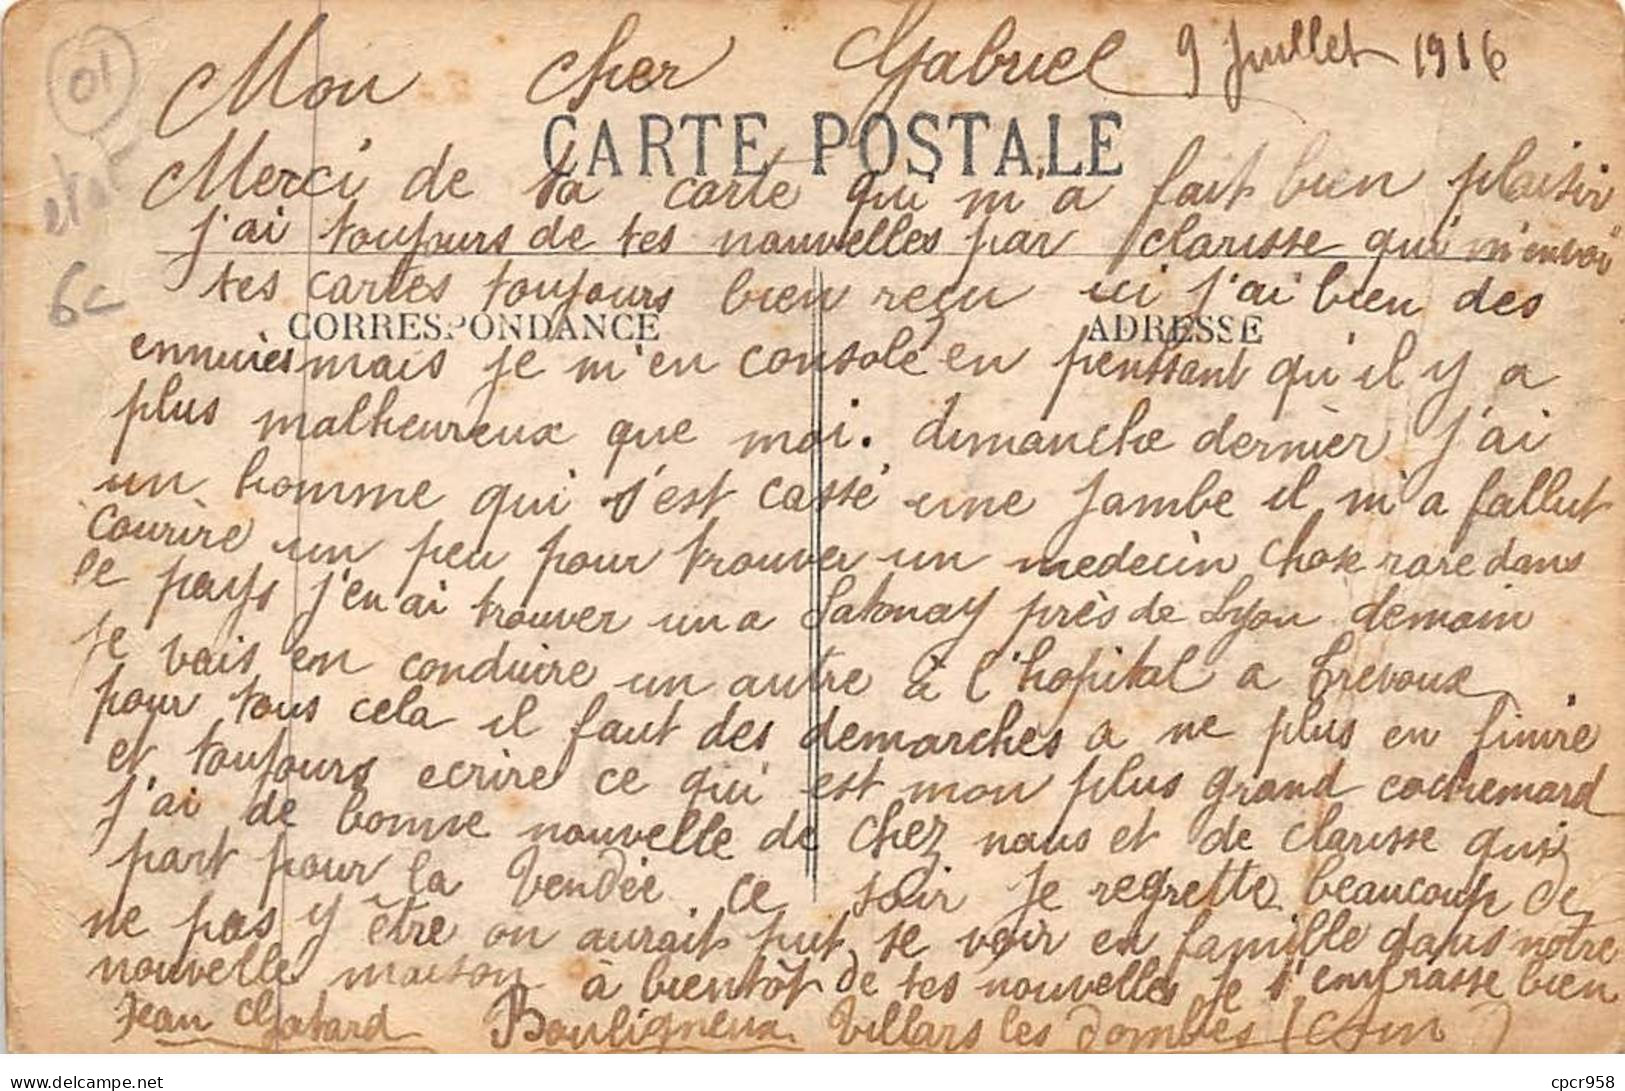 01
6c
Mon cher Gabriel 9 Juillet 1916
CARTE POSTALE
Merci de ta carte qui m'a fait bien plaisir
j'ai toujours de tes nouvelles par clarisse qui m'envoi
tes cartes toujours bien reçu ici j'ai bien des
CORRESPONDANCE ADRESSE
ennuies mais je m'en console en penssant qu'il y a
plus malheureux que moi. dimanche dernièr j'ai
un homme qui s'est cassé une jambe il m'a fallut
courire un peu pour trouver un medecin chose rare dans
le pays j'en ai trouver un a Satonay près de Lyon demain
je vais en conduire un autre à l'hopital a Trevoux
pour tous cela il faut des demarches a ne plus en finire
et toujours ecrire ce qui est mon plus grand cochemard
j'ai de bonne nouvelle de chez nous et de clarisse qui
part pour la Vendée ce soir je regrette beaucoup de
ne pas y être on aurait put se voir en famille dans notre
nouvelle maison à bientôt de tes nouvelles je t'embrasse bien
Jean Bouligneux Villars les dombes (Ain)
cpcr958